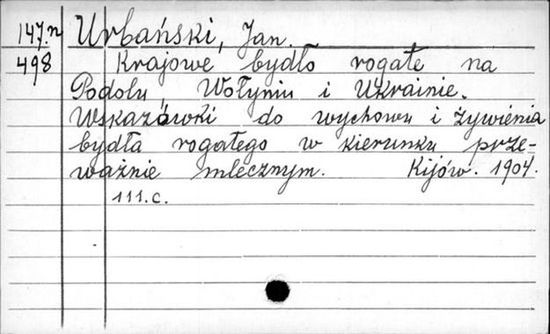 147.n Urbański, Jan.
498 Krajowe bydło rogate na
Podolu Wołyniu i Ukrainie.
Wskazówki do wychowu i żywienia
bydła rogatego w kierunku prze-
ważnie mlecznym. Kijów. 1904.
111.c.